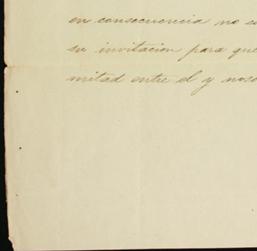 en consecuencia no
su invitacion para que
mitad entre el y